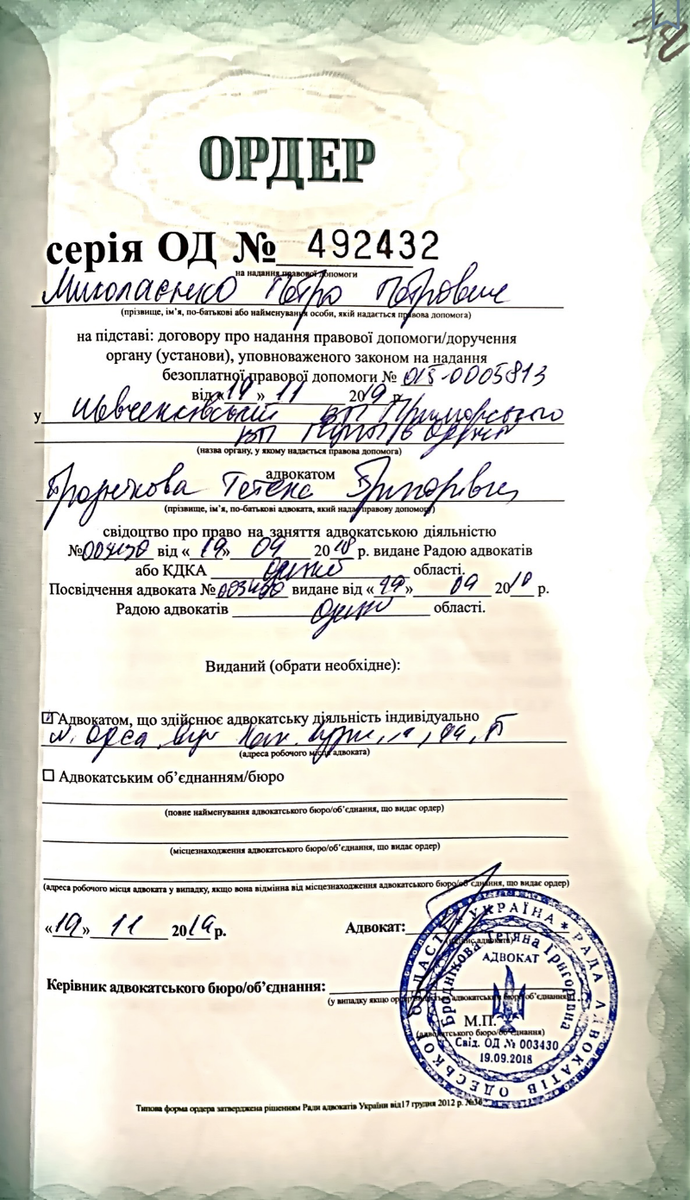 ОРДЕР
серія ОД № 492432
на надання правової допомоги
Миколаєнко Петро Петрович
(прізвище, ім’я, по-батькові або найменування особи, якій надається правова допомога)
на підставі: договору про надання правової допомоги/доручення
органу (установи), уповноваженого законом на надання
безоплатної правової допомоги № 015-0005813
від «19» 11 2019 р.
у Шевченківський ВП Приморського
ВП
(назва органу, у якому надається правова допомога)
адвокатом
Броднікова Тетяна Григорівна
(прізвище, ім’я, по-батькові адвоката, який надає правову допомогу)
свідоцтво про право на заняття адвокатською діяльністю
№003430 від «19» 09 2018 р. видане Радою адвокатів
або КДКА області.
Посвідчення адвоката №003430 видане від «19» 09 2018 р.
Радою адвокатів області.
Виданий (обрати необхідне):
☑ Адвокатом, що здійснює адвокатську діяльність індивідуально
м. Одеса, вул
(адреса робочого місця адвоката)
☐ Адвокатським об’єднанням/бюро
(повне найменування адвокатського бюро/об’єднання, що видає ордер)
(місцезнаходження адвокатського бюро/об’єднання, що видає ордер)
(адреса робочого місця адвоката у випадку, якщо вона відмінна від місцезнаходження адвокатського бюро/об’єднання, що видає ордер)
«19» 11 2019 р.
Адвокат:
(підпис адвоката)
Керівник адвокатського бюро/об’єднання:
(у випадку якщо ордер адвокатським бюро/об’єднанням)
М.П.
(адвокатського бюро/об’єднання)
УКРАЇНА * РАДА АДВОКАТІВ ОДЕСЬКОЇ ОБЛАСТІ *
Броднікова Тетяна Григорівна
АДВОКАТ
Свід. ОД № 003430
19.09.2018
Типова форма ордера затверджена рішенням Ради адвокатів України від 17 грудня 2012 р. №36